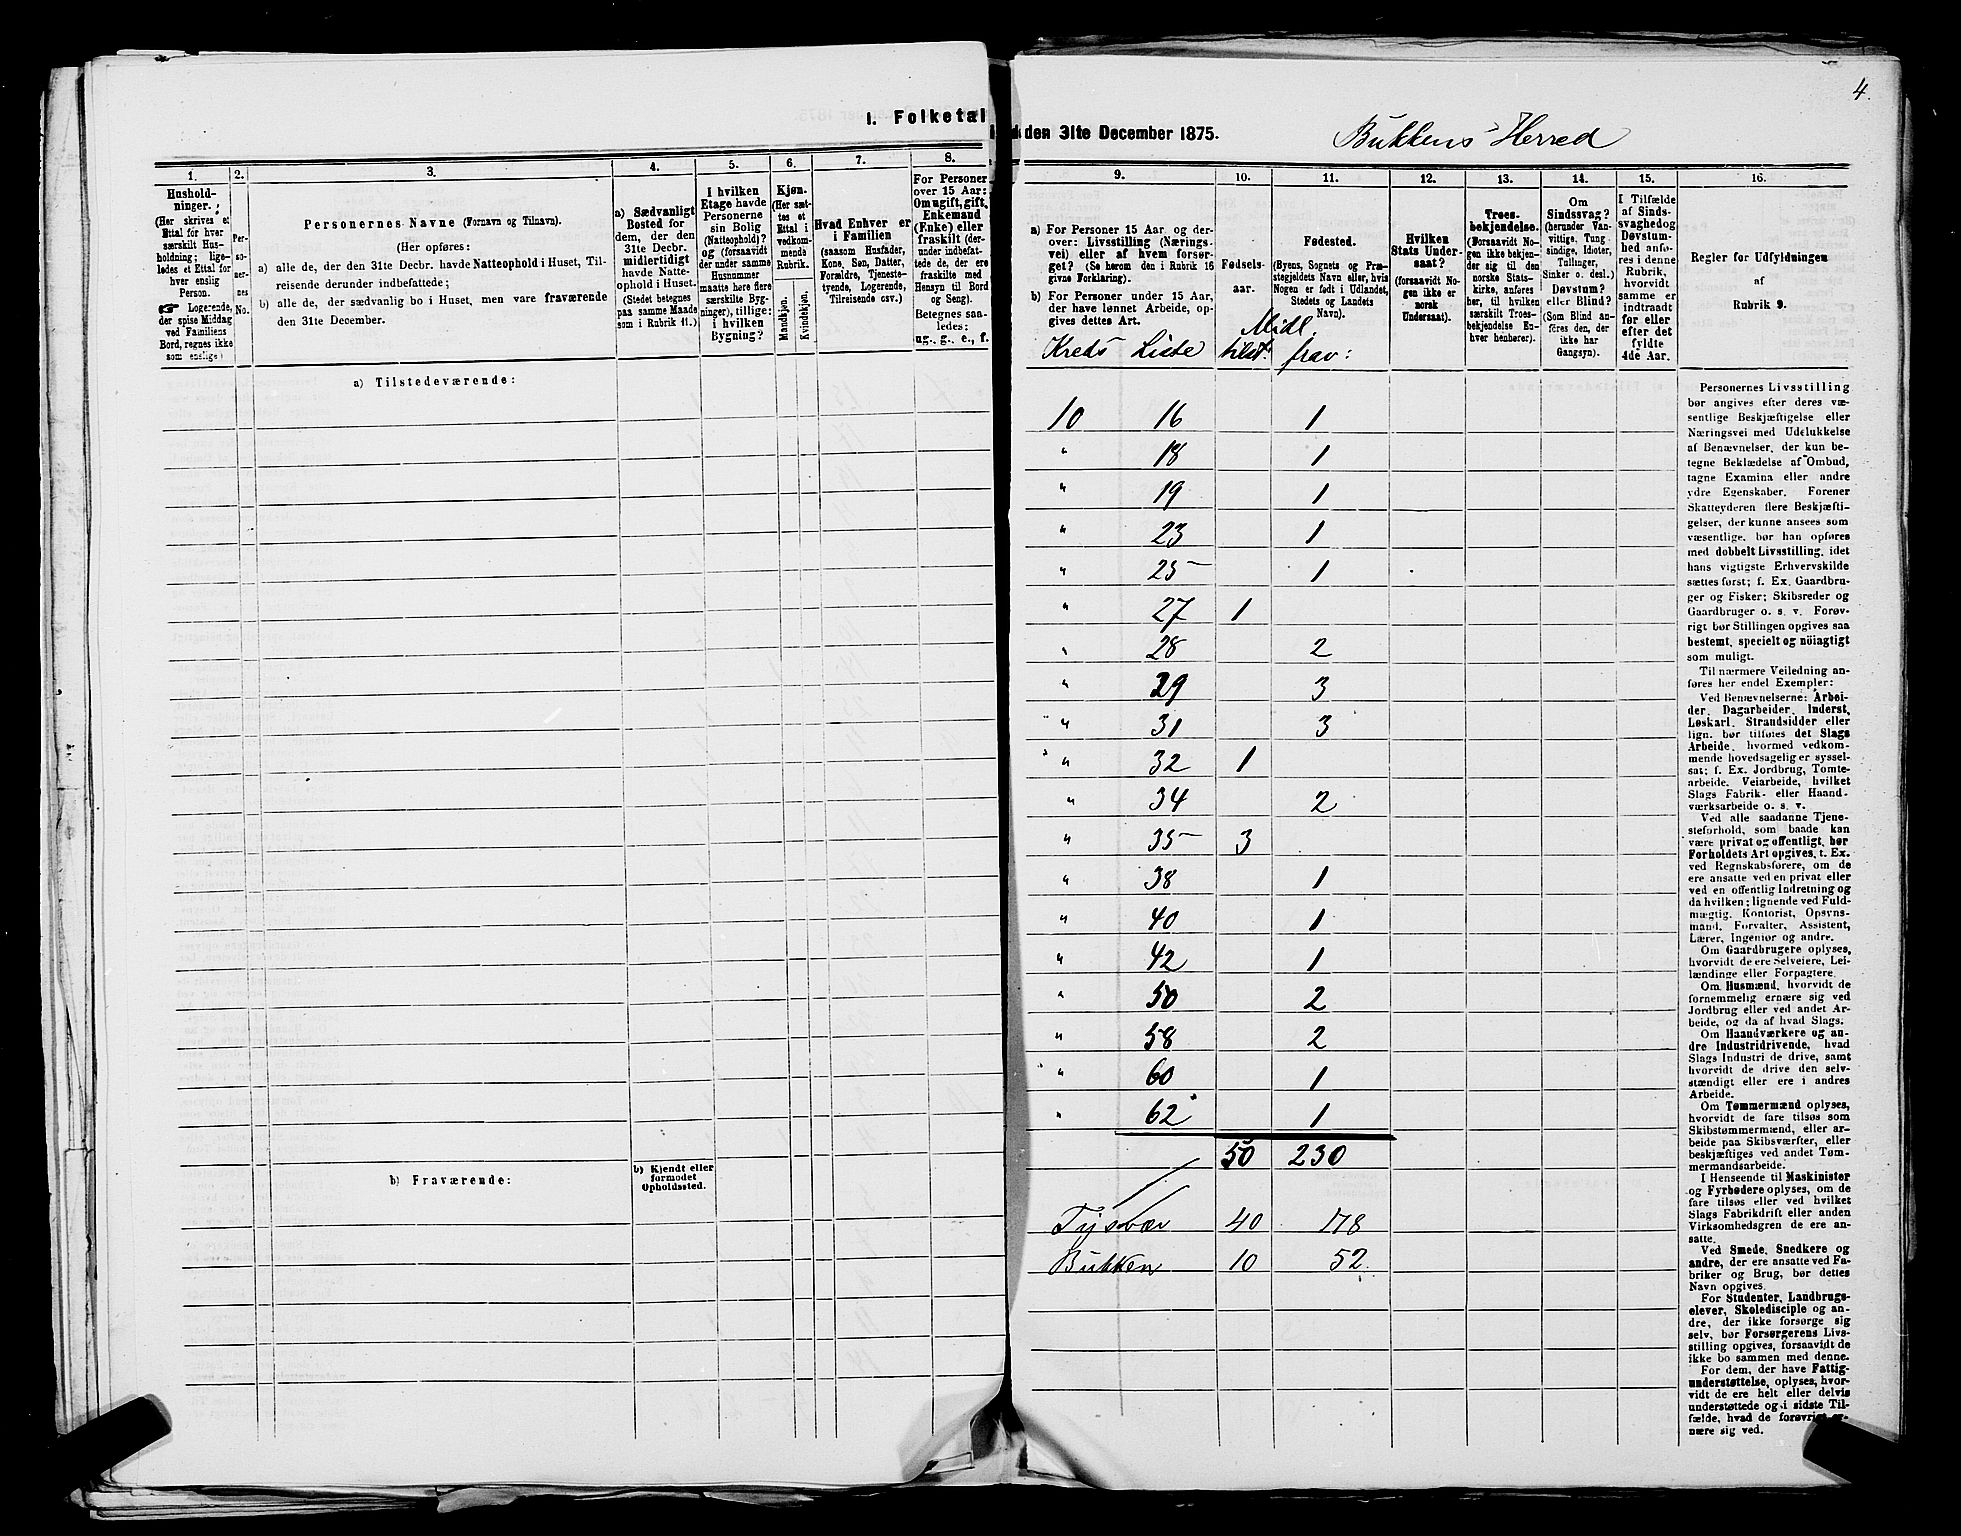 I. Folketal
1. 2. 3. 4. 5. 6. 7. 8.
Hushold-
ninger.
(Her skrives et
Ettal for hver
særskilt Hus-
holdning; lige-
ledes et Ettal for
hver enslig
Person.
☞ Logerende,
der spise Middag
ved Familiens
Bord, regnes ikke
som enslige)
Per-
so-
ner-
nes
No.
Personernes Navne (Fornavn og Tilnavn).
(Her opføres:
a) alle de, der den 31te Decbr. havde Natteophold i Huset, Til-
reisende derunder indbefattede;
b) alle de, der sædvanlig bo i Huset, men vare fraværende
den 31te December.
a) Sædvanligt
Bosted for
dem, der den
31te Decbr.
midlertidigt
havde Natte-
ophold i Huset.
(Stedet betegnes
paa samme Maade
som i Rubrik 11.)
I hvilken
Etage havde
Personerne
sin Bolig
(Natteophold)?
og (forsaavidt
der under samme
Husnummer
maatte høre flere
særskilte Byg-
ninger), tillige:
i hvilken
Bygning?
Kjøn.
(Her sæt-
tes et
Ettal i
vedkom-
mende
Rubrik.
Mandkjøn.
Kvindekjøn.
Hvad Enhver er
i Familien
(saasom Husfader,
Kone, Søn, Datter,
Forældre, Tjeneste-
tyende, Logerende,
Tilreisende osv.)
For Personer
over 15 Aar:
Om ugift, gift,
Enkemand
(Enke) eller
fraskilt (der-
under indbefat-
tede de, der ere
fraskilte med
Hensyn til Bord
og Seng).
Betegnes saa-
ledes:
ug., g., e., f.
a) Tilstedeværende:
b) Fraværende:
b) Kjendt eller
formodet
Opholdssted.
4.
den 31te December 1875.
Bukkens Herred
9. 10. 11. 12. 13. 14. 15. 16.
a) For Personer 15 Aar og der-
over: Livsstilling (Nærings-
vei) eller af hvem forsør-
get? (Se herom den i Rubrik 16
givne Forklaring).
b) For Personer under 15 Aar,
der have lønnet Arbeide, op-
gives dettes Art.
Fødsels-
aar.
Fødested.
(Byens, Sognets og Præ-
stegjeldets Navn eller, hvis
Nogen er født i Udlandet,
Stedets og Landets
Navn).
Hvilken
Stats Under-
saat?
(forsaavidt No-
gen ikke er
norsk
Undersaat).
Troes-
bekjendelse.
(Forsaavidt No-
gen ikke bekjen-
der sig til den
norske Stats-
kirke, anføres
her, til hvilken
særskilt Troes-
bekjendelse En-
hver henhører).
Om
Sindssvag?
(herunder Van-
vittige, Tung-
sindige, Idioter,
Tullinger,
Sinker o. desl.)
Døvstum?
eller Blind?
(Som Blind an-
føres den, der
ikke har
Gangsyn).
I Tilfælde
af Sinds-
svaghed og
Døvstum-
hed anfø-
res i denne
Rubrik,
hvorvidt
samme er
indtraadt
før eller
efter det
fyldte
4de Aar.
Regler for Udfyldningen
af
Rubrik 9.
Midl.
Kreds Liste tilst. frav:
10 16 1
" 18 1
" 19 1
" 23 1
" 25 1
" 27 1
" 28 2
" 29 3
" 31 3
" 32 1
" 34 2
" 35 3
" 38 1
" 40 1
" 42 1
" 50 2
" 58 2
" 60 1
" 62 1
50 230
Tysvær 40 178
Bukken 10 52
Personernes Livsstilling
bør angives efter deres væ-
sentlige Beskjæftigelse eller
Næringsvei med Udelukkelse
af Benævnelser, der kun be-
tegne Beklædelse af Ombud,
tagne Examina eller andre
ydre Egenskaber. Forener
Skatteyderen flere Beskjæfti-
gelser, der kunne ansees som
væsentlige, bør han opføres
med dobbelt Livsstilling, idet
hans vigtigste Erhvervskilde
sættes først; f. Ex. Gaardbru-
ger og Fisker; Skibsreder og
Gaardbruger o. s. v. Forøv-
rigt bør Stillingen opgives saa
bestemt, specielt og nöiagtigt
som muligt.
Til nærmere Veiledning an-
føres her endel Exempler:
Ved Benævnelserne: Arbei-
der, Dagarbeider, Inderst,
Løskarl, Strandsidder eller
lign. bør tilføies det Slags
Arbeide, hvormed vedkom-
mende hovedsagelig er syssel-
sat; f. Ex. Jordbrug, Tomte-
arbeide, Veiarbeide, hvilket
Slags Fabrik- eller Haand-
værksarbeide o. s. v.
Ved alle saadanne Tjene-
steforhold, som baade kan
være privat og offentligt, bør
Forholdets Art opgives, t. Ex.
ved Regnskabsførere, om de
ere ansatte ved en privat eller
ved en offentlig Indretning og
da hvilken; lignende ved Fuld-
mægtig, Kontorist, Opsyns-
mand, Forvalter, Assistent,
Lærer, Ingeniør og andre.
Om Gaardbrugere oplyses,
hvorvidt de ere Selveiere, Lei-
lændinge eller Forpagtere.
Om Husmænd, hvorvidt de
fornemmelig ernære sig ved
Jordbrug eller ved andet Ar-
beide, og da af hvad Slags.
Om Haandværkere og an-
dre Industridrivende, hvad
Slags Industri de drive, samt
hvorvidt de drive den selv-
stændigt eller ere i andres
Arbeide.
Om Tømmermænd oplyses,
hvorvidt de fare tilsøs som
Skibstømmermænd, eller ar-
beide paa Skibsværfter, eller
beskjæftiges ved andet Tøm-
mermandsarbeide.
I Henseende til Maskinister
og Fyrbødere oplyses, om de
fare tilsøs eller ved hvilket
Slags Fabrikdrift eller anden
Virksomhedsgren de ere an-
satte.
Ved Smede, Snedkere og
andre, der ere ansatte ved Fa-
briker og Brug, bør dettes
Navn opgives.
For Studenter, Landbrugs-
elever, Skoledisciple og an-
dre, der ikke forsørge sig
selv, bør Forsørgerens Livs-
stilling opgives, forsaavidt de
ikke bo sammen med denne.
For dem, der have Fattig-
understøttelse, oplyses, hvor-
vidt de ere helt eller delvis
understøttede og i sidste Til-
fælde, hvad de forøvrigt er-
nære sig ved.